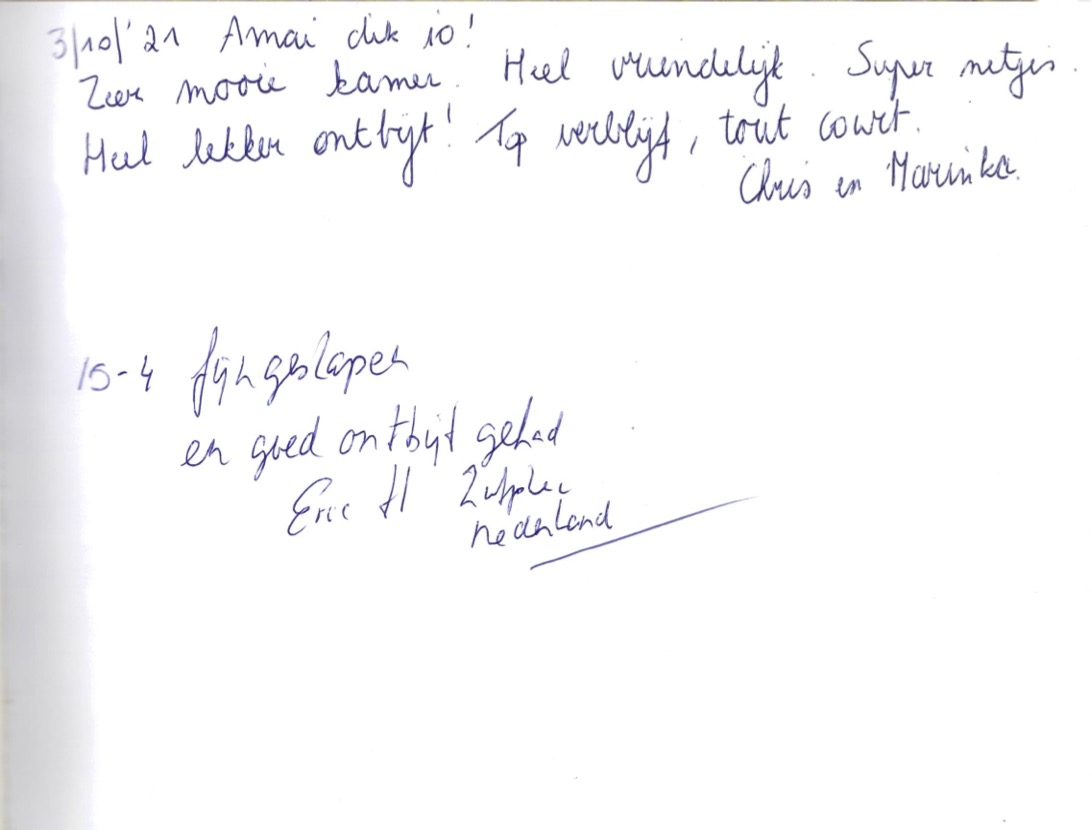 3/10/'21 Amai dik 10!
Zeer mooie kamer. Heel vriendelijk. Super netjes.
Heel lekker ontbijt! Top verblijf, tout court.
Chris en Marinka.
15-4 fijn geslapen
en goed ontbijt gehad
Eric H Zutphen
nederland